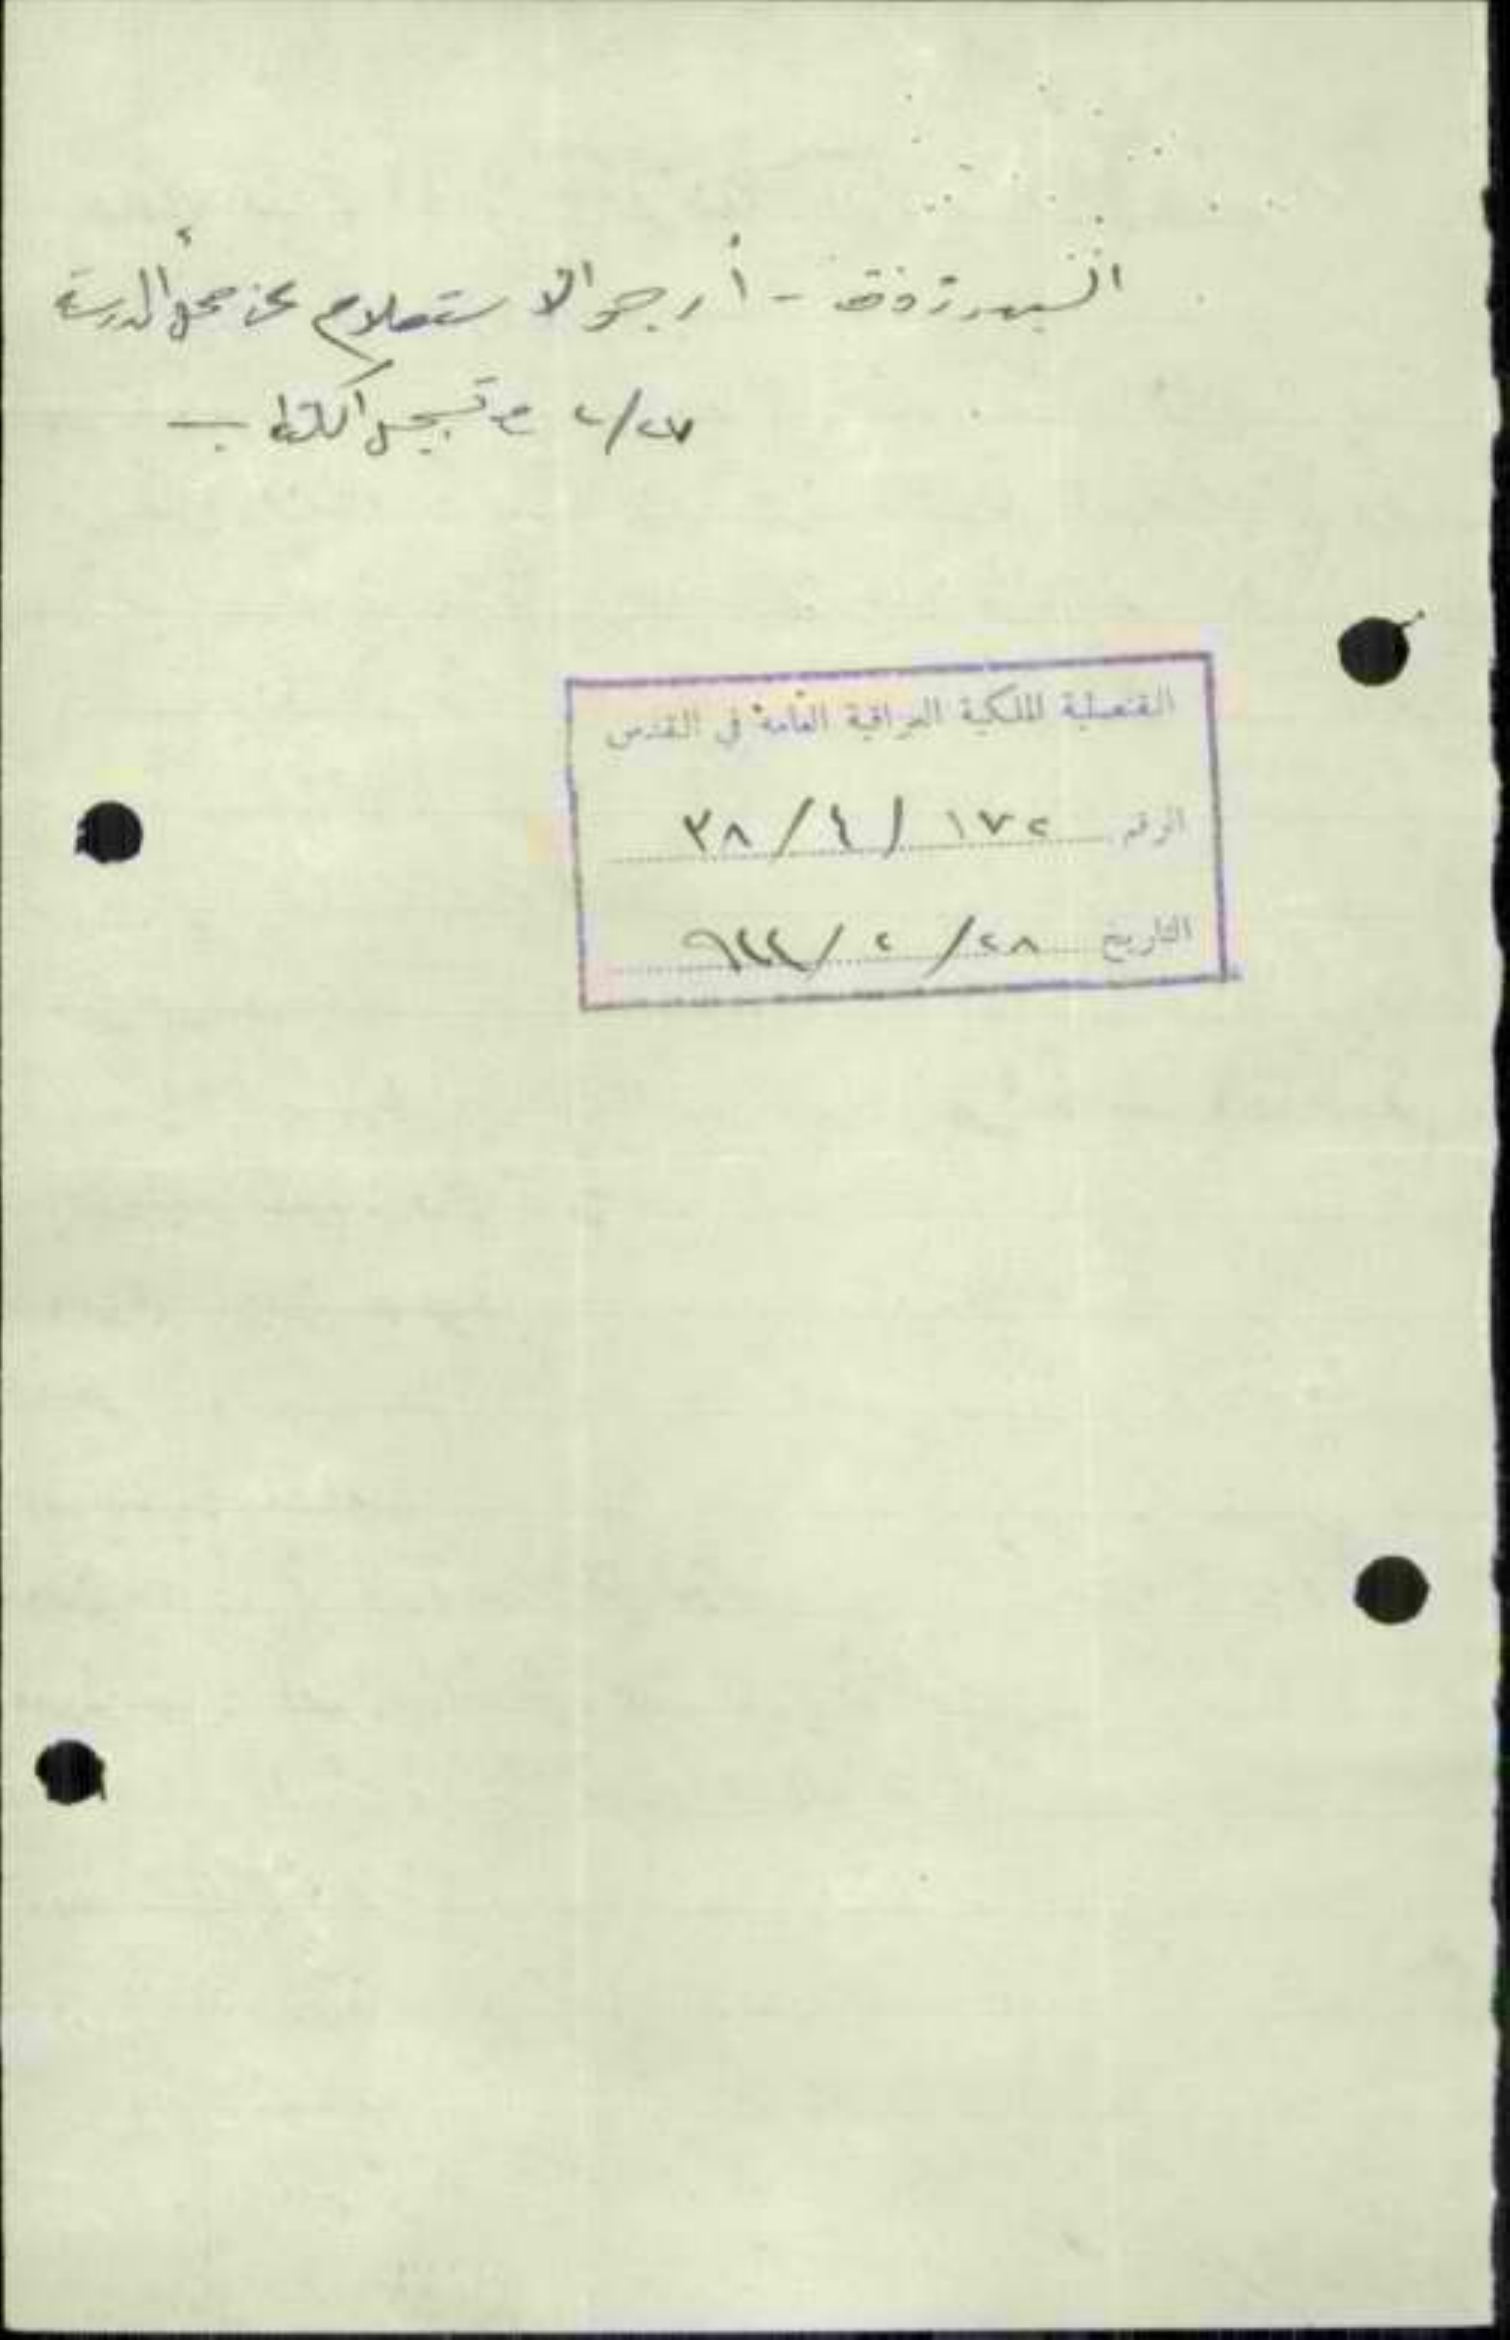 السيد رزوق - أرجو الاستعلام عن محل المدرسة
٢/٢٧ مع تسجيل الكتاب
القنصلية الملكية العراقية العامة في القدس
الرقم ١٧٢ / ٤ / ٣٨
التاريخ ٢٨ / ٢ / ٩٤٤